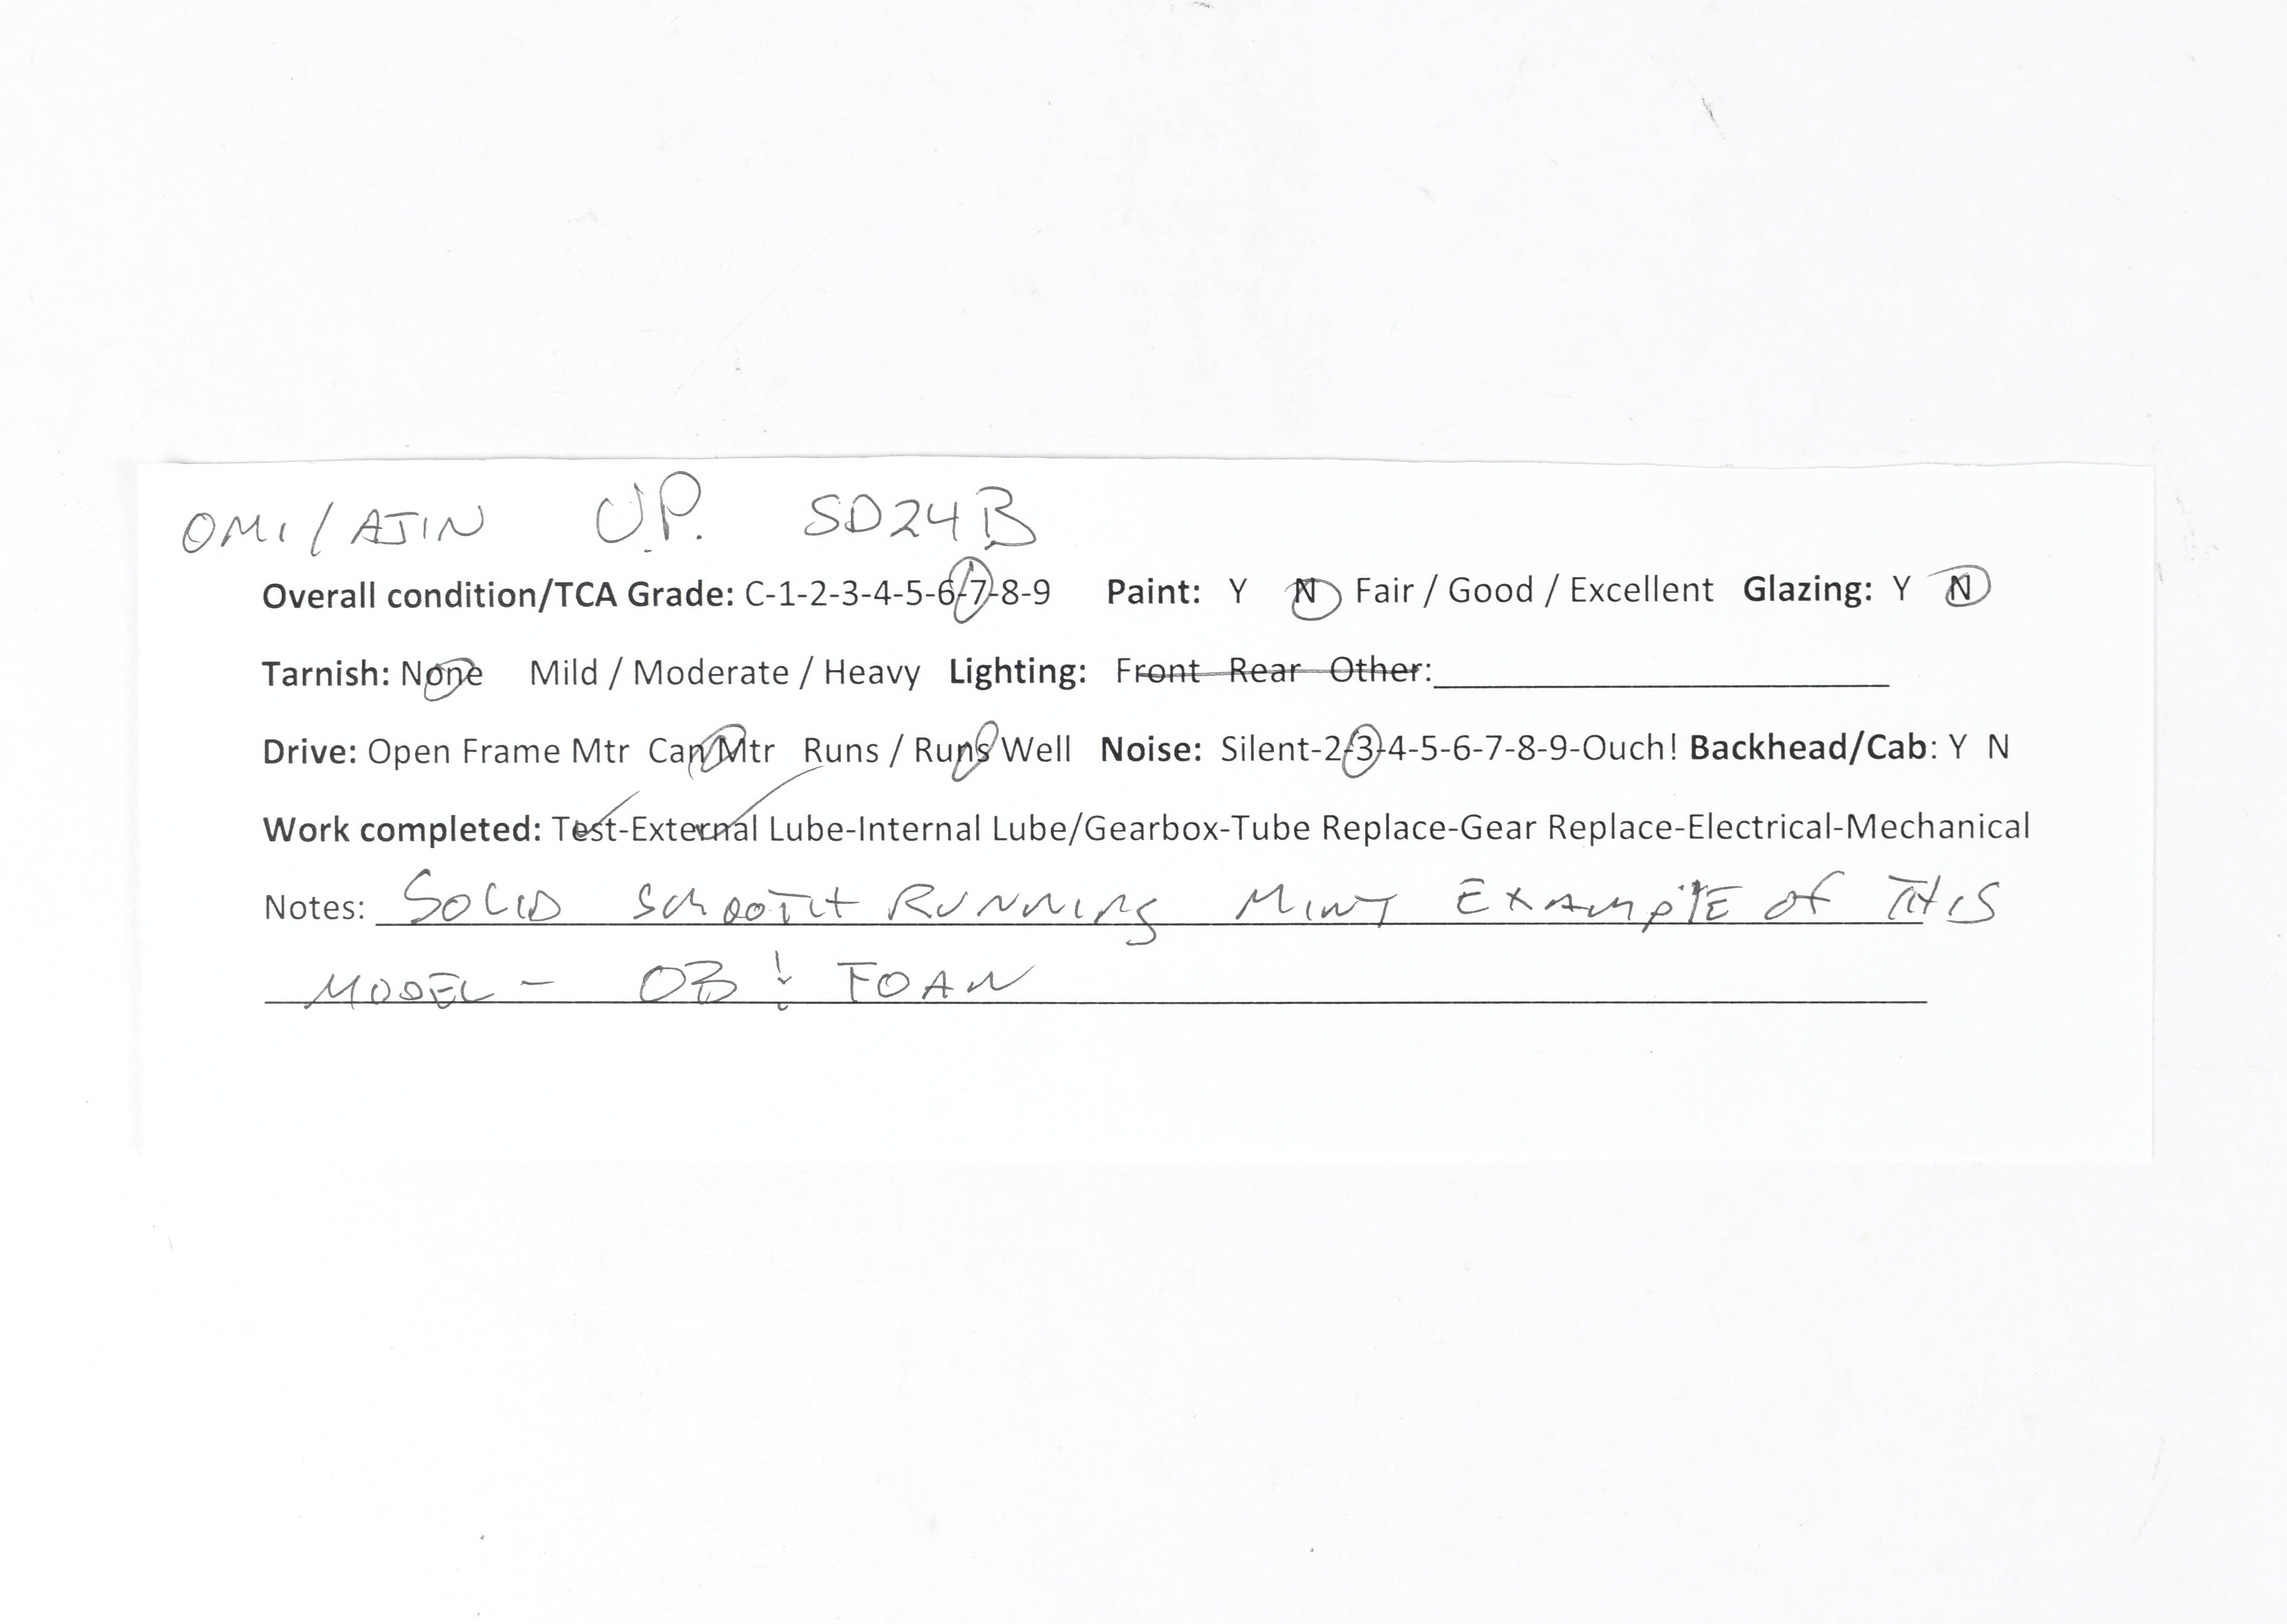 OMI/AJIN U.P. SD24B
Overall condition/TCA Grade: C-1-2-3-4-5-6-7-8-9 Paint: Y N Fair / Good / Excellent Glazing: Y N
Tarnish: None Mild / Moderate / Heavy Lighting: Front Rear Other:
Drive: Open Frame Mtr Can Mtr Runs / Runs Well Noise: Silent-2-3-4-5-6-7-8-9-Ouch! Backhead/Cab: Y N
Work completed: Test-External Lube-Internal Lube/Gearbox-Tube Replace-Gear Replace-Electrical-Mechanical
Notes: SOLID SMOOTH RUNNING MINT EXAMPLE OF THIS
MODEL - OB & FOAM